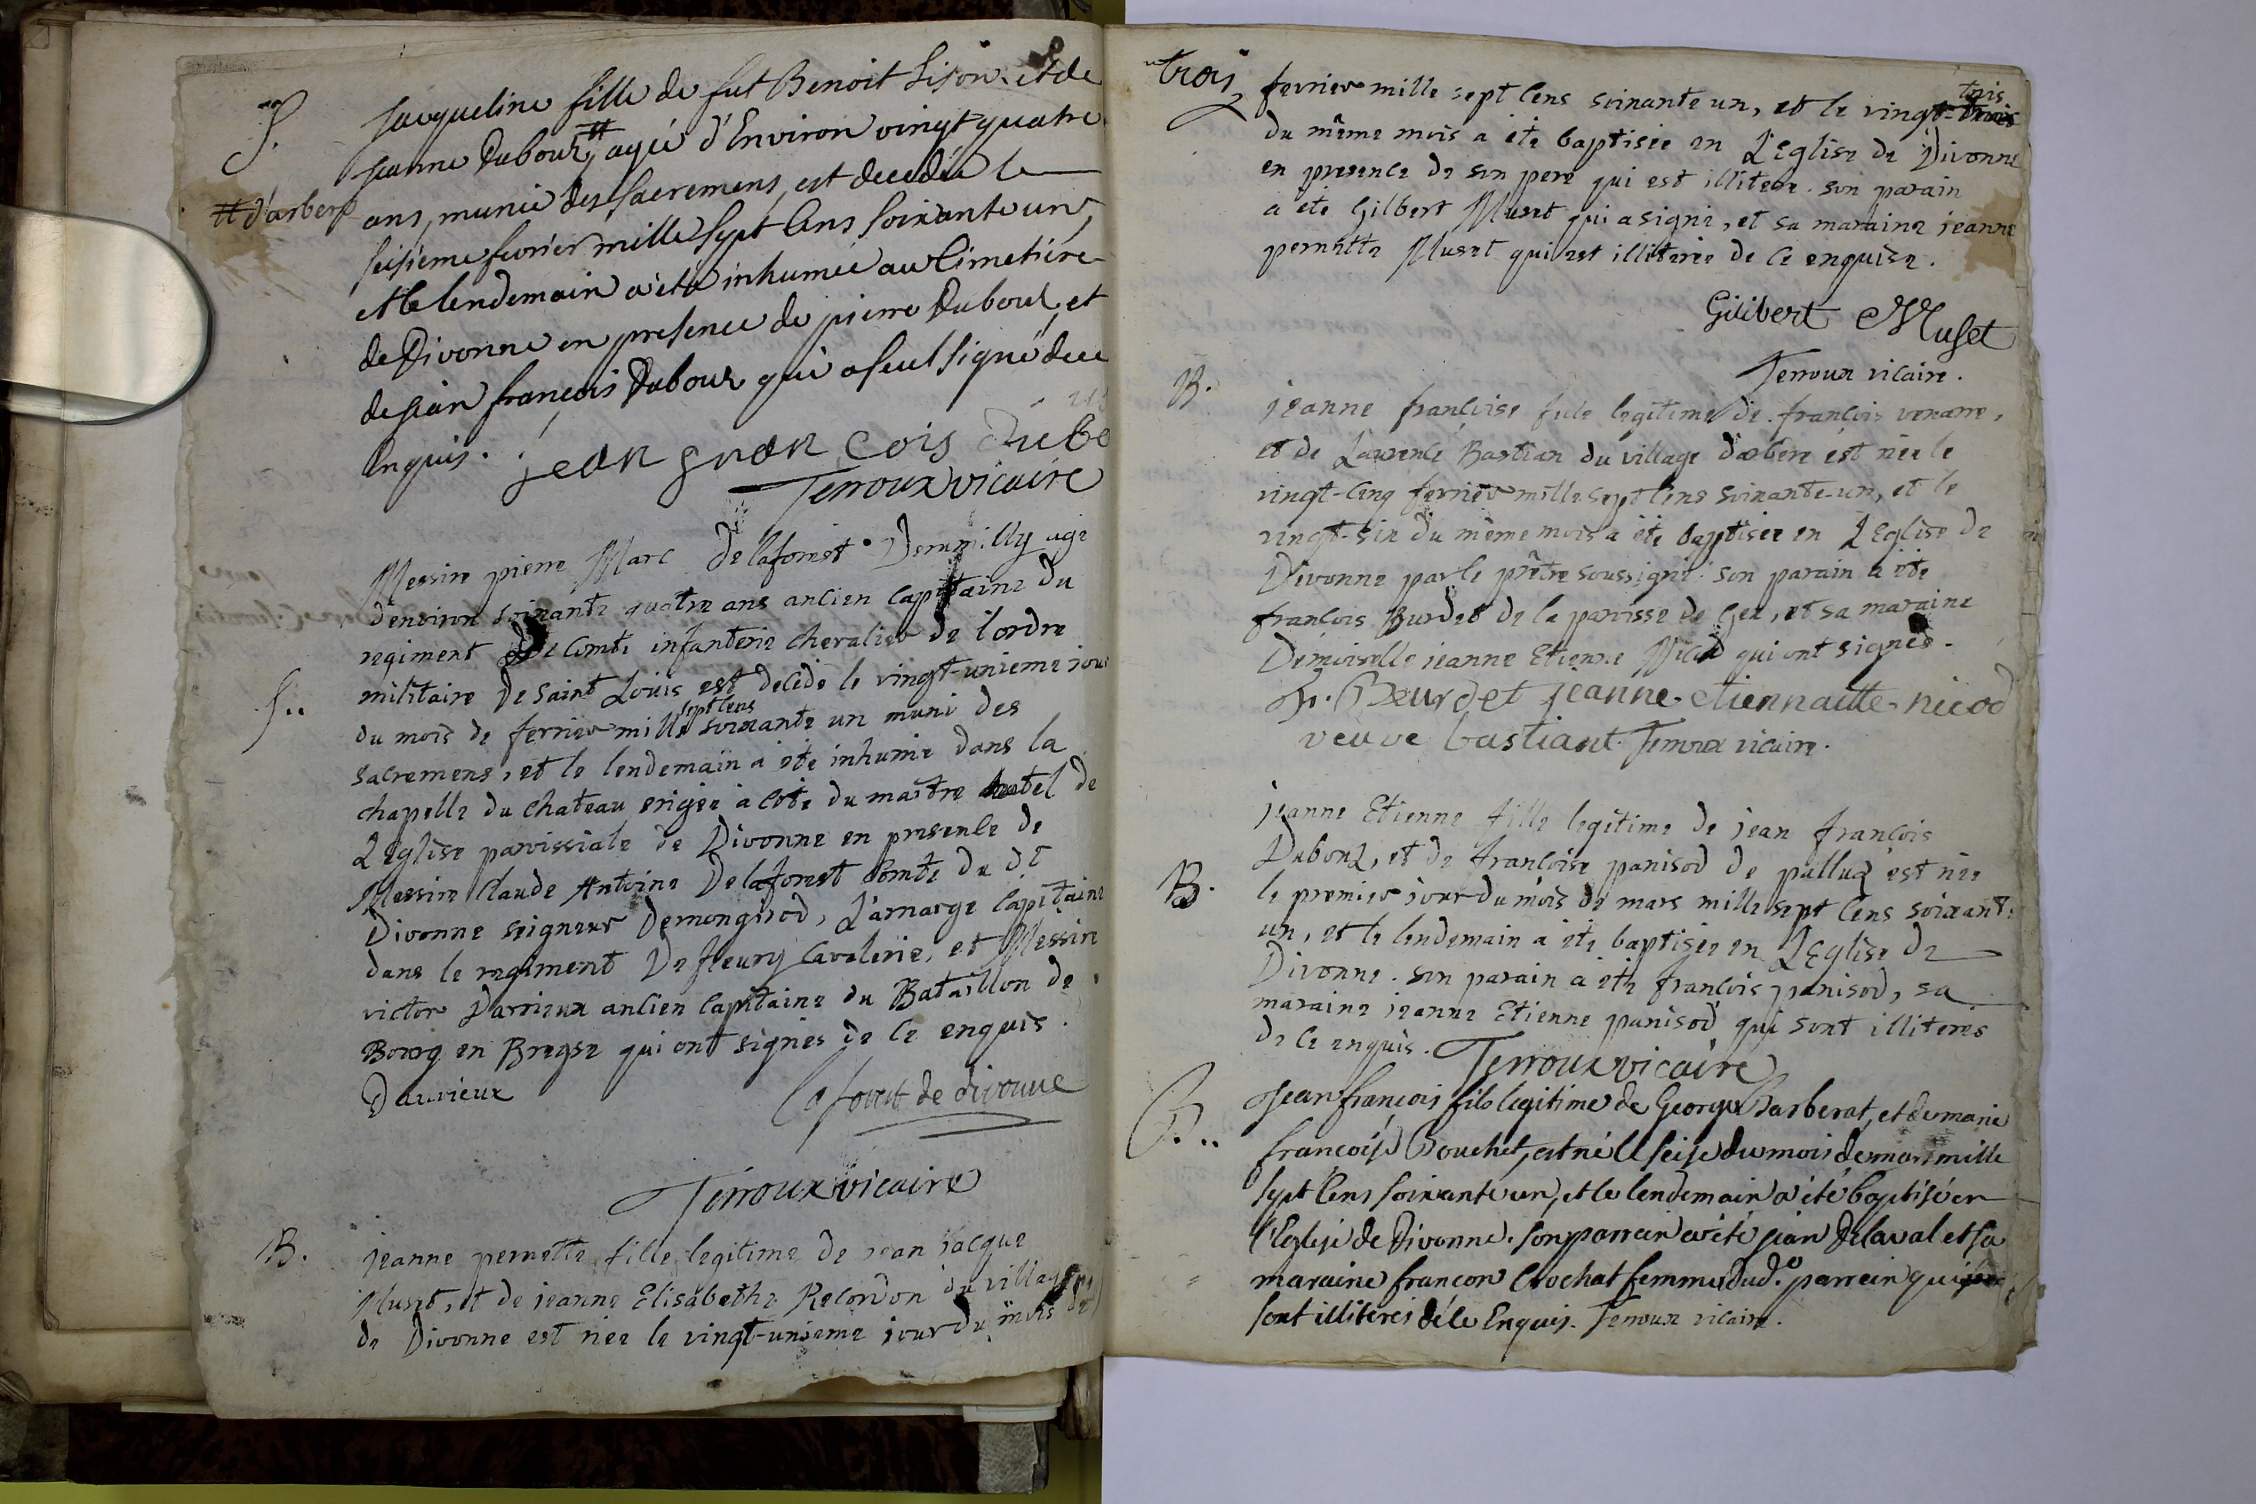 S.
Jacqueline fille de fut Benoit Lison et de
jeanne Dubouz # agée d'Environ vingt quatre
# d'arbere
ans, munie des Sacremens, est decedée le
seisieme fevrier mille Sept Cens Soixante un,
et le lendemain a été inhumée au Cimetiére
de Divonne en presence de pierre Dubouz, et
de jean françois Dubouz qui a seul signé de ce
Enquis.
jean fran cois Dubo
Terroux vicaire
S..
Messire pierre Marc Delaforest Derumilly agé
d'environ soixante quatre ans ancien capitaine du
regiment De Comté infanterie chevalier de l'ordre
militaire De Saint Louis est decedé le vingt-unieme jour
du mois de fevrier mille sept cens soixante un muni des
sacremens, et le lendemain a été inhumé dans la
chapelle du chateau erigée a coté du maitre hotel de
L'Eglise parroissiale de Divonne en presence de
Messire Claude Antoine Delaforest Comte du dt
Divonne seigneur Demongisod, L'arnarge Capitaine
dans le regiment De fleury Cavalerie, et Messire
victor Darrieux ancien Capitaine du Bataillon de
Bourg en Bregse qui ont signés de ce enquis.
Dauvieux
Laforest de divonne
Terroux vicaire
B.
jeanne pernette fille legitime de jean jacque
Muset, et de jeanne Elisabethe Recordon du village
de Divonne est née le vingt-unieme jour du mois de
trois
fevrier mille sept Cens soixante un, et le vingt-trois
du même mois a été baptisée en L'Eglise de Divonne
en presence de son pere qui est illiteré. son parain
a été Gilbert Muset qui a signé, et sa maraine jeanne
pernette Muset qui est illiterée de ce enquise.
Gilibert Muset
Terroux vicaire.
B.
jeanne françoise fille legitime de françois venarre,
et de Laurence Bastian du village d'arbere est née le
vingt-cinq fevrier mille sept cens soixante-un, et le
vingt-six du meme mois a été baptisée en L'Eglise de
Divonne par le prêtre soussigné. son parain a été
françois Burdet de la paroisse de Gex, et sa maraine
Demoiselle jeanne Etienne Nicod qui ont signés.
fr. Beurdet jeanne etiennaitte nicod
veuve bastiant. Terroux vicaire.
B.
jeanne Etienne fille legitime de jean françois
Dubouz, et de françoise panisod de pulluz est née
le premier jour du mois de mars mille sept Cens soixante
un, et le lendemain a été baptisée en L'Eglise de
Divonne. son parain a été françois panisod, sa
maraine jeanne Etienne panisod qui sont illiterés
de ce enquis. Terroux vicaire
B..
Jean françois fils legitime de George Barberat, et de marie
françoise Bouchet, est né le seise du mois de mars mille
sept Cens soixante un, et le lendemain a été baptisé en
l'Eglise de Divonne. son parrein a été jean Delaval et sa
maraine françon Crochat femme dud.o parrein qui
sont illiterés de ce Enquis. Terroux vicaire.